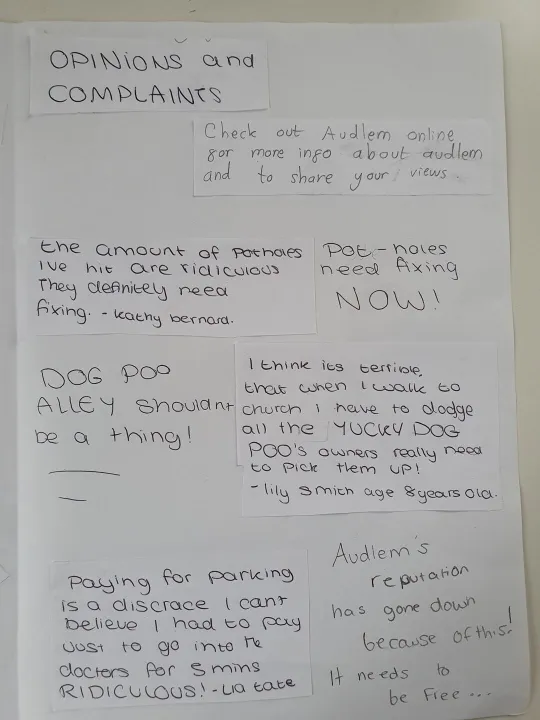 OPINIONS and
COMPLAINTS
Check out Audlem online
for more info about audlem
and to share your views.
the amount of potholes
I've hit are ridiculous
They definitely need
fixing. - kathy bernard.
Pot-holes
need fixing
NOW!
DOG POO
ALLEY shouldnt
be a thing!
I think its terrible,
that when I walk to
church I have to dodge
all the YUCKY DOG
POO's owners really need
to pick them up!
- lily smith age 8 years old.
Paying for parking
is a discrace I can't
believe I had to pay
Just to go into the
doctors for 5 mins
RIDICULOUS! - Lia tate
Audlem's
reputation
has gone down
because of this!
It needs to
be free...